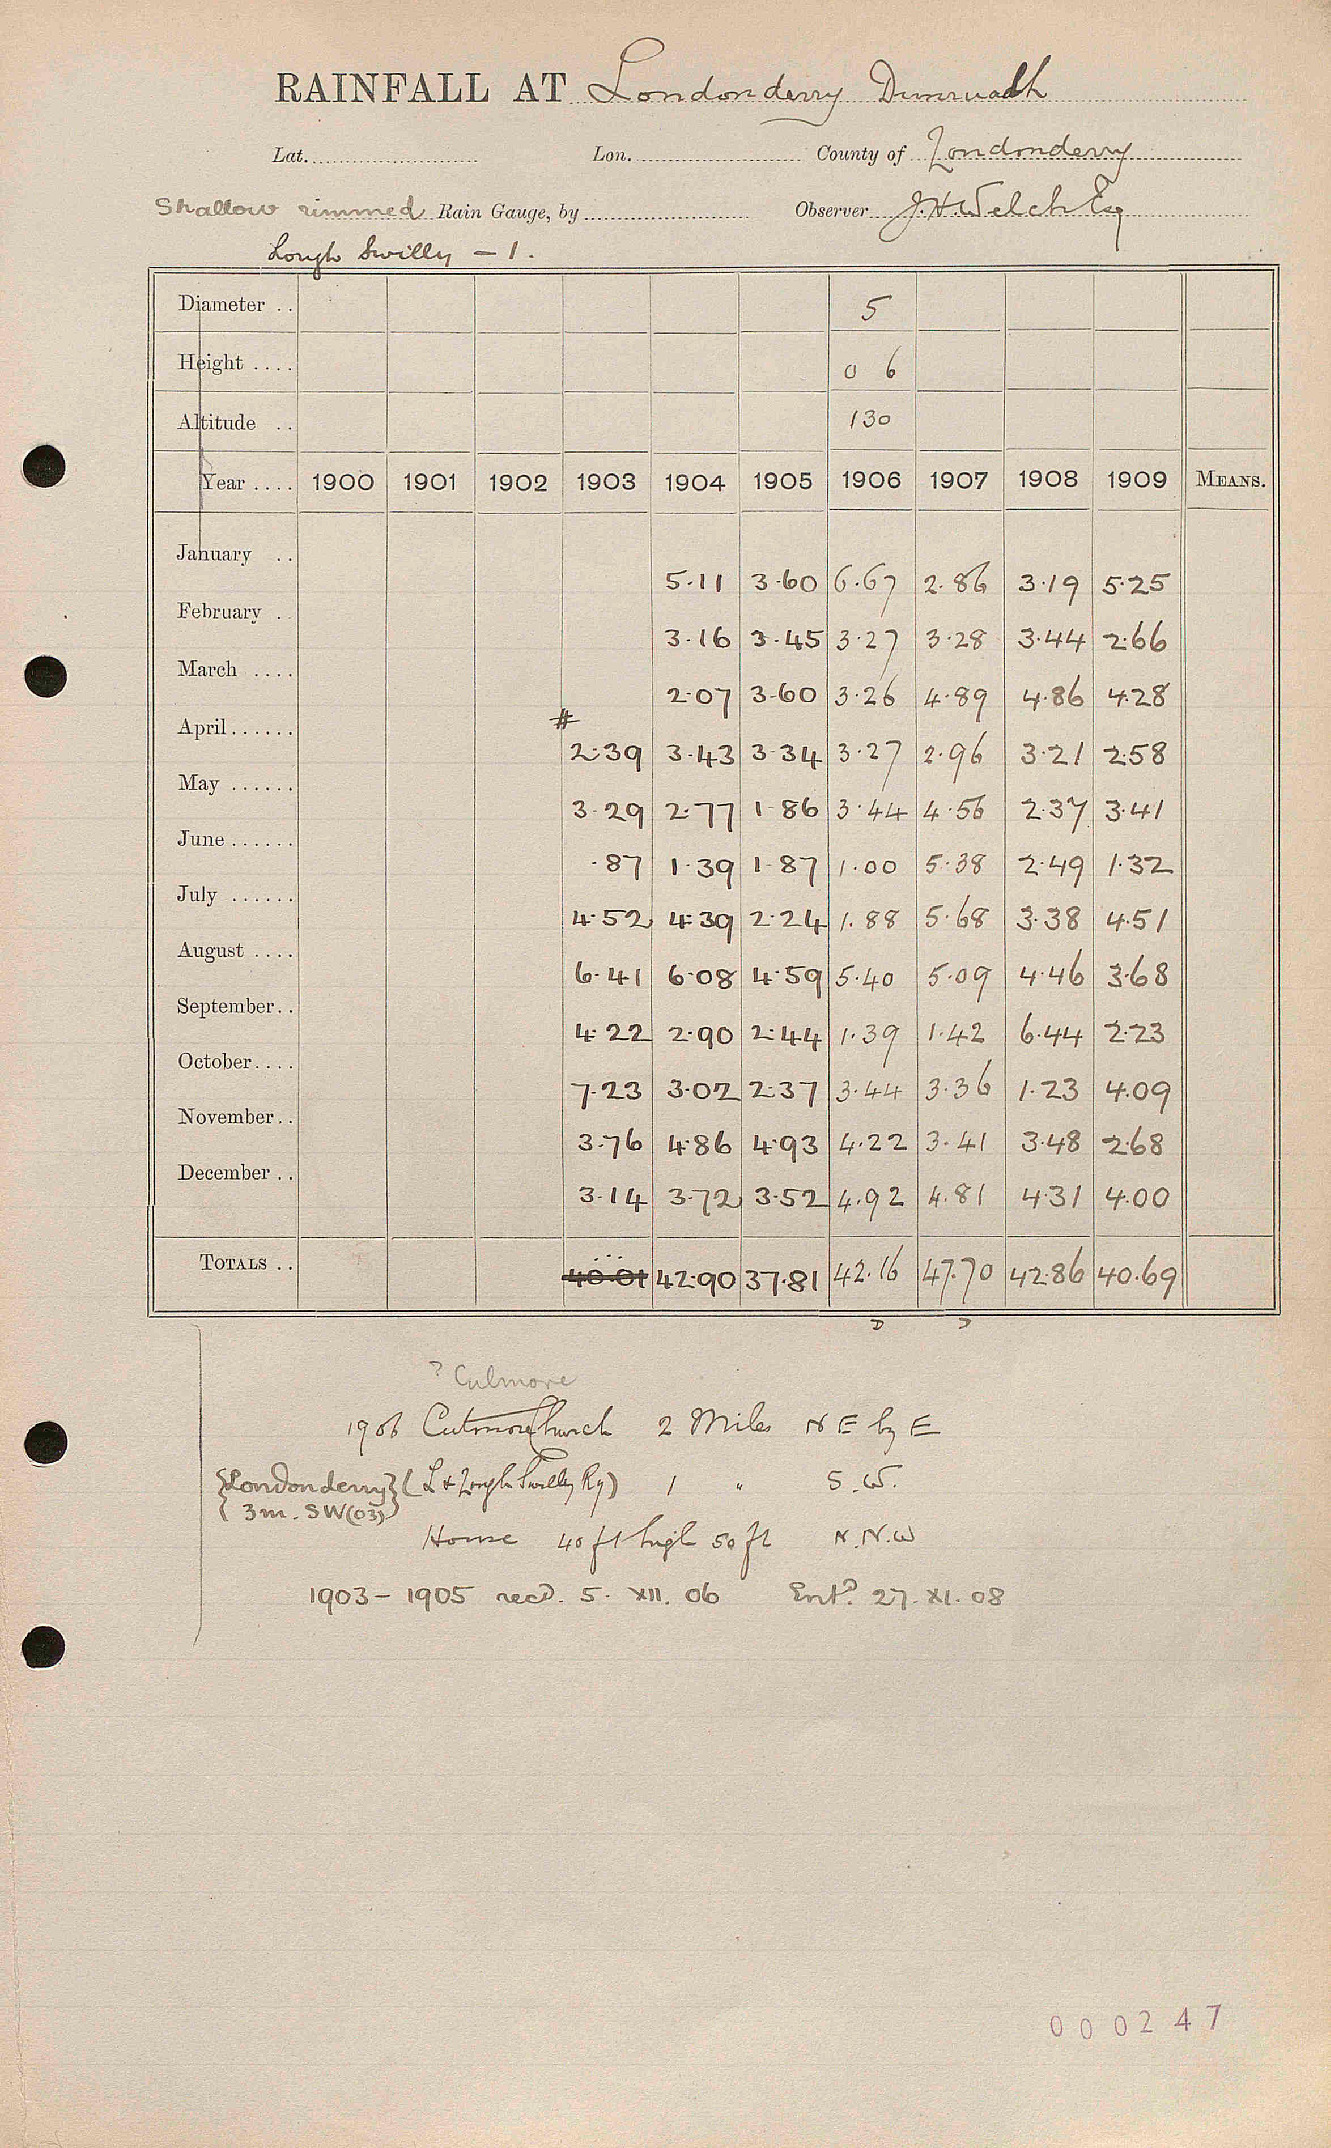 RAINFALL AT Londonderry
Lat. Lon. County of Londonderry
Shallow rimmed Rain Gauge, by Observer J.H. Welch Esq
Lough Swilly - 1.
Diameter .. 5
Height .... 0 6
Altitude .. 130
Year .... 1900 1901 1902 1903 1904 1905 1906 1907 1908 1909 MEANS.
January .. 5.11 3.60 6.67 2.86 3.19 5.25
February .. 3.16 3.45 3.27 3.28 3.44 2.66
March .... 2.07 3.60 3.26 4.89 4.86 4.28
#
April...... 2.39 3.43 3.34 3.27 2.96 3.21 2.58
May ...... 3.29 2.77 1.86 3.44 4.56 2.37 3.41
June ...... .87 1.39 1.87 1.00 5.38 2.49 1.32
July ...... 4.52 4.39 2.24 1.88 5.68 3.38 4.51
August .... 6.41 6.08 4.59 5.40 5.09 4.46 3.68
September.. 4.22 2.90 2.44 1.39 1.42 6.44 2.23
October.... 7.23 3.02 2.37 3.44 3.36 1.23 4.09
November.. 3.76 4.86 4.93 4.22 3.41 3.48 2.68
December .. 3.14 3.72 3.52 4.92 4.81 4.31 4.00
TOTALS .. 40.01 42.90 37.81 42.16 47.70 42.86 40.69
? Culmore
1906 Culmore Church 2 Miles N E by E
{Londonderry} (L & Lough Swilly Ry) 1 " S.W.
{3m. SW(03)}
House 40 ft high 50 ft N.N.W
1903 - 1905 recd. 5. XII. 06 Entd. 27. XI. 08
000247